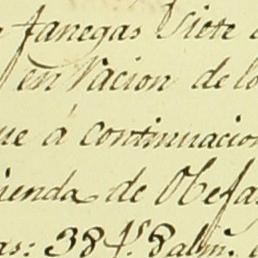 fanegas Siete
en Vacion de lo
ue á continuacion
ienda de
as: 384